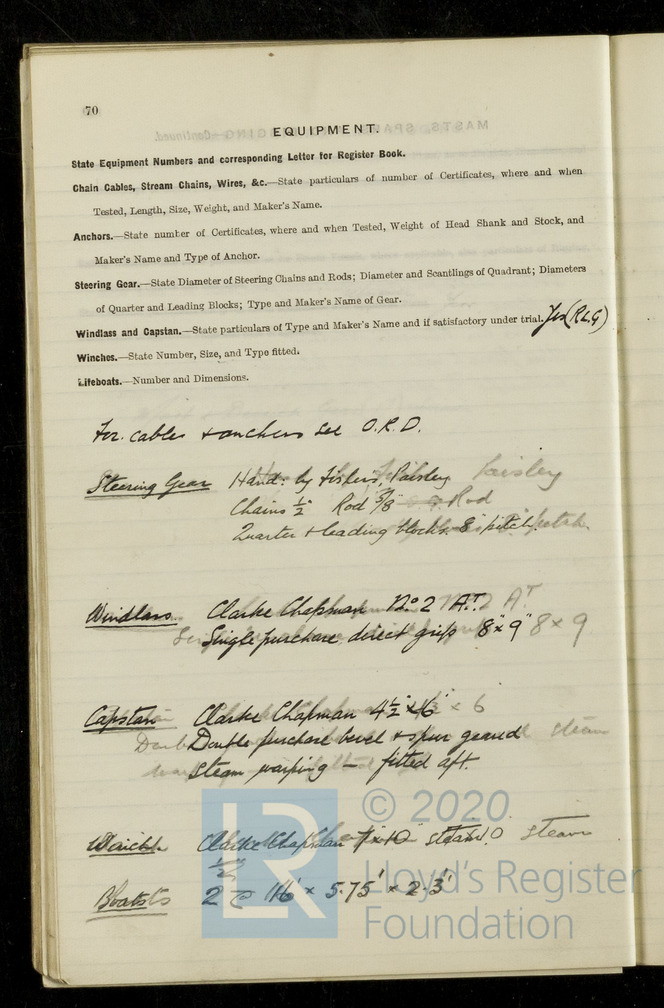 70
EQUIPMENT.
State Equipment Numbers and corresponding Letter for Register Book.
Chain Cables, Stream Chains, Wires, &c.—State particulars of number of Certificates, where and when
Tested, Length, Size, Weight, and Maker's Name.
Anchors.—State number of Certificates, where and when Tested, Weight of Head Shank and Stock, and
Maker's Name and Type of Anchor.
Steering Gear.—State Diameter of Steering Chains and Rods; Diameter and Scantlings of Quadrant; Diameters
of Quarter and Leading Blocks; Type and Maker's Name of Gear.
Windlass and Capstan.—State particulars of Type and Maker's Name and if satisfactory under trial. Yes (R.L.G)
Winches.—State Number, Size, and Type fitted.
Lifeboats.—Number and Dimensions.
For cables + anchors see O.R.D.
Steering Gear Hand: by Fishers, Paisley
Chains ½" Rod 5/8"
Quarter + leading blocks 8" pitch.
Windlass Clarke Chapman No 2 A.T.
Single purchase direct grip 8" x 9"
Capstan Clarke Chapman 4½" x 6"
Double purchase bevel + spur geared
Steam warping — fitted aft.
Clarke Chapman 7 x 10 steam
Boats 2 @ 16' x 5.75' x 2.3'
© 2020
Lloyd's Register
Foundation
LR